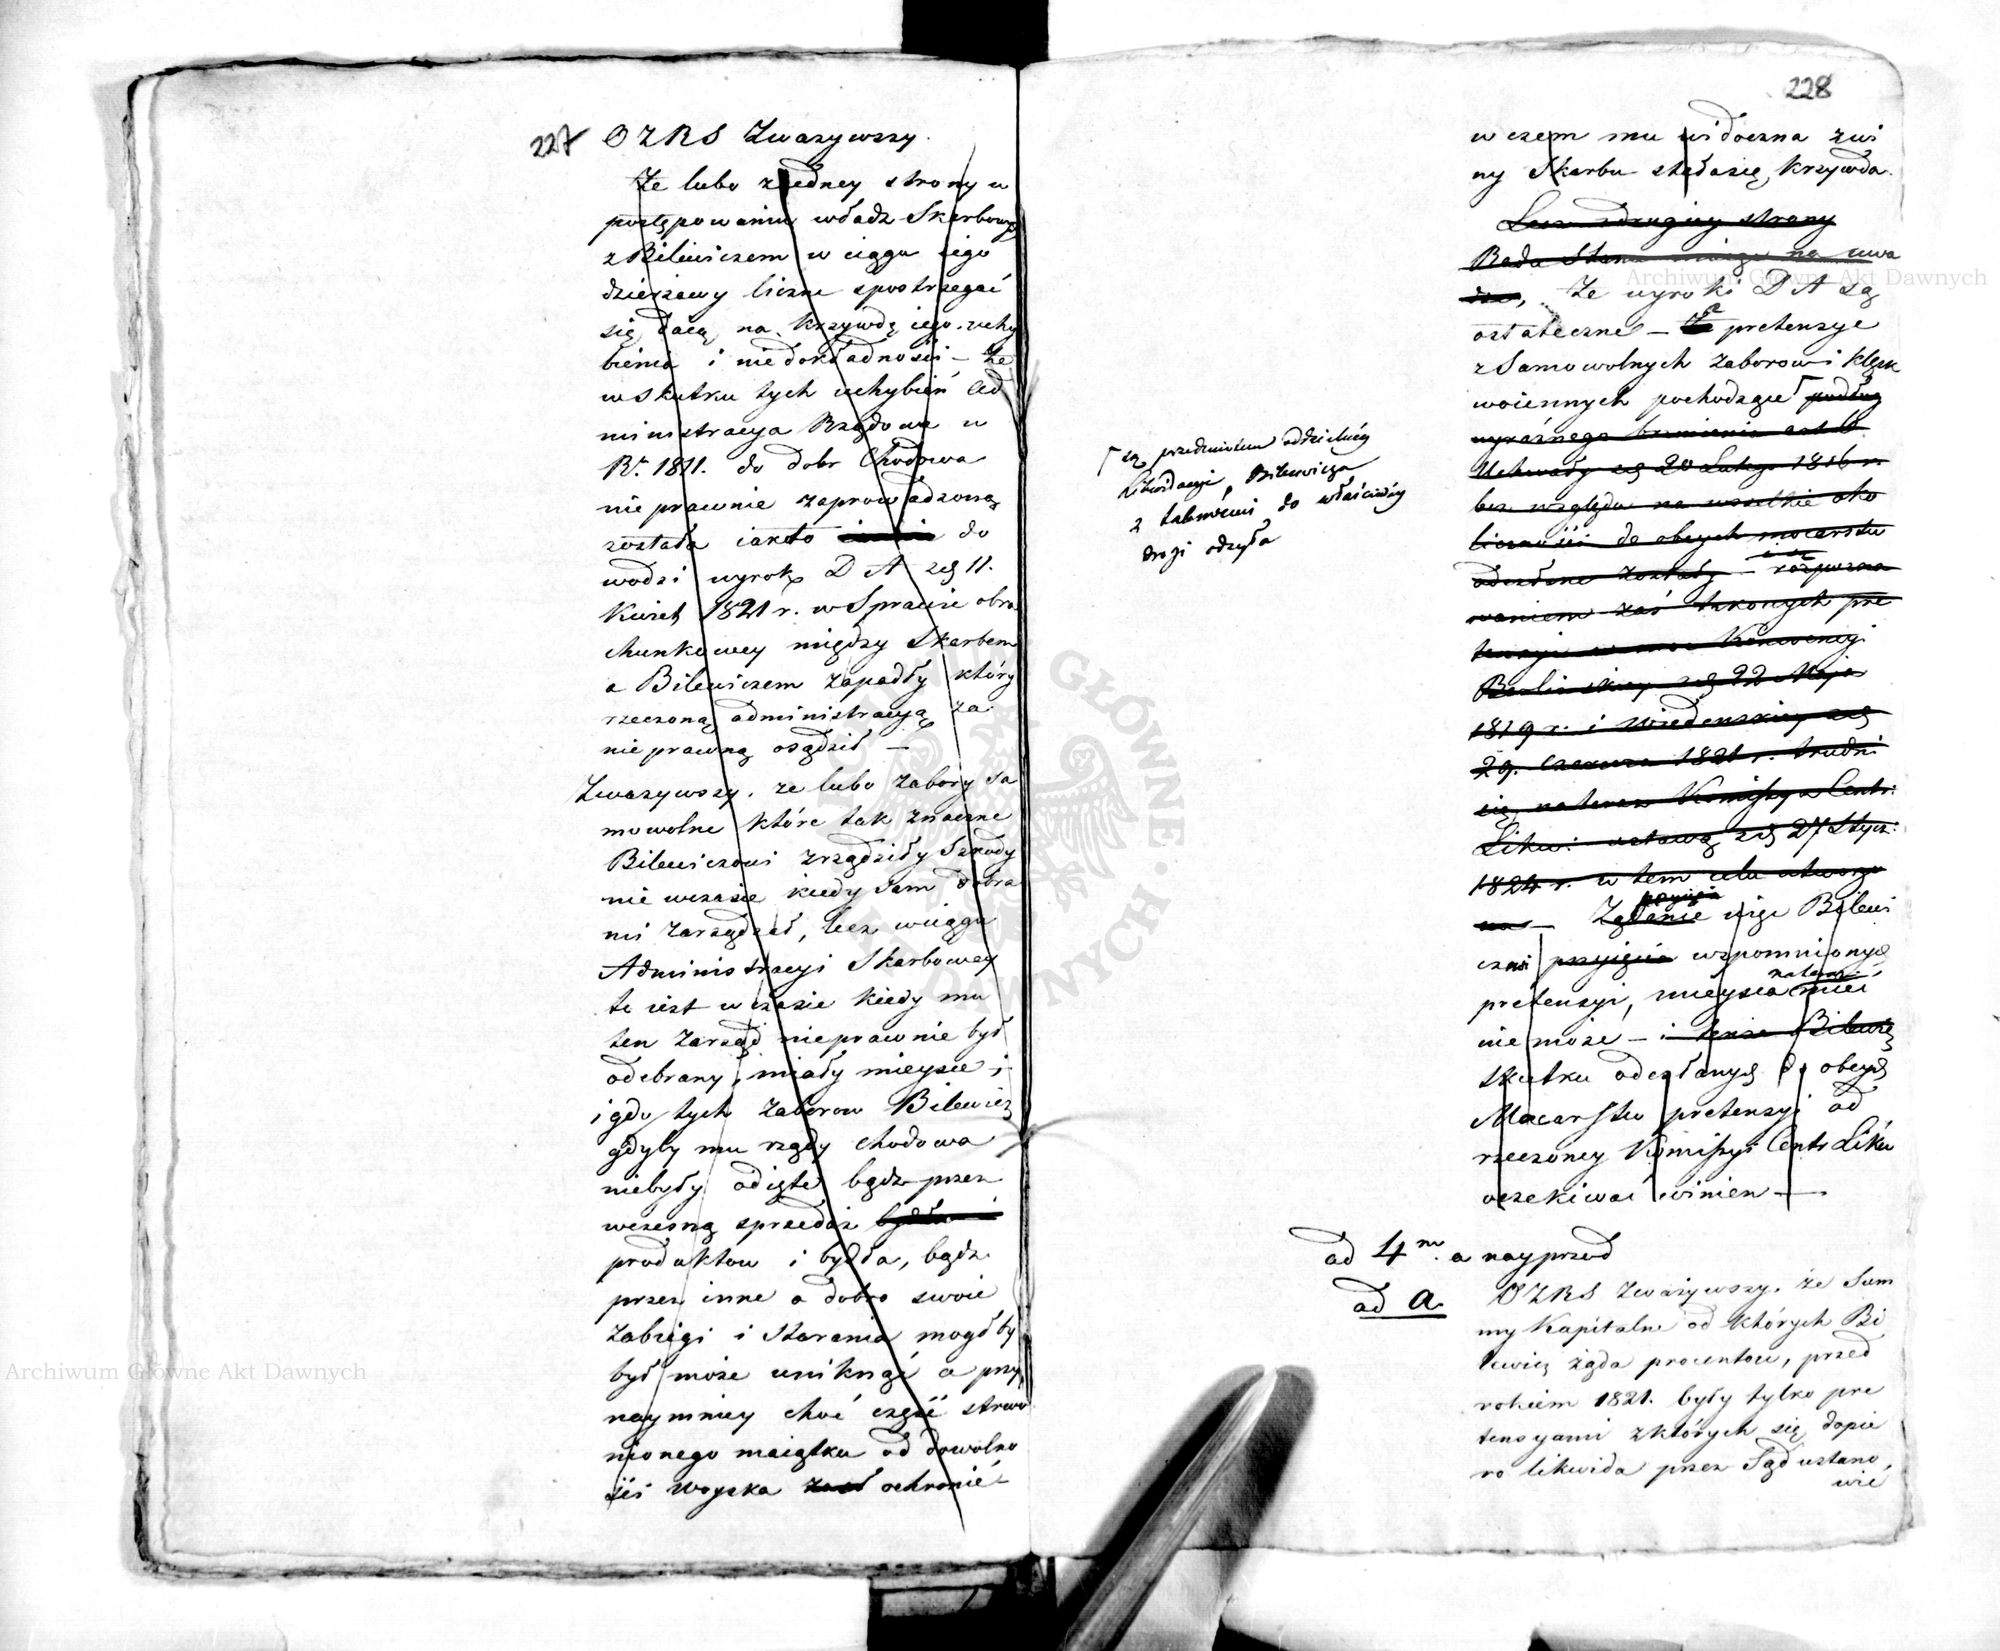 227
OZRS Zważywszy.
Że lubo z iedney strony w
postępowaniu władz Skarbowych
z Bilewiczem w ciągu iego
dzierżawy liczne spostrzegać
się daią na krzywdę iego uchy
bienia i niedokładności – że
w skutku tych uchybień Ad
ministracya Rządowa w
Ru. 1811. do dobr Chodowa
nieprawnie zaprowadzoną
została iakto do
wodzi wyrok D A z d. 11.
Kwiet 1821 r. w Sprawie obra
chunkowey między Skarbem
a Bilewiczem zapadły który
rzeczoną administracyą za
nieprawną osądził –
Zważywszy, że lubo zabory sa
mowolne które tak znaczne
Bilewiczowi zrządziły szkody
nie wczasie kiedy sam dobra
mi zarządzał, lecz wciągu
Administracyi Skarbowey
to iest w czasie kiedy mu
ten zarząd nieprawnie był
odebrany, miały mieysce i
igdy tych zaborow Bilewicz
gdyby mu rządy chodowa
niebyły odięte bądz przez
wczesną sprzedaż
produktow i bydła, bądz
przez inne o dobro swoie
zabiegi i starania mogłby
był może uniknąć a przy
naymniey choć część strwo
nionego maiątku od dowolno
ści woyska ochronić –
228
w czem mu widoczna z wi
ny Skarbu stała się krzywda.
Lecz z drugiey strony
Rada Stanu maiąc na uwa
dze, Że wyroki D A są
ostateczne – że pretensye
z Samowolnych zaborow i klęsk
woiennych pochodzące podług
wyraźnego brzmienia art 6
Uchwały z d 20 Lutego 1816 r.
bez względu na wszelkie oko
liczności do obcych mocarstw
odesłane zostały – rozpozna
waniem zaś takowych pre
tensyi w moc Konwencyi
Berlinskiey z d 22 Maja
1819 r. i Wiedenskiey z d
29. Czerwca 1821 r. trudni
się na teraz Kommissya Centr:
Likw: ustawą z d 27 Stycz:
1824 r. w tem celu utworzo
na – Żądanie więc Bilewi
czowi przyięcia wspomnionych
pretensyi, mieysca mieć
nie może – i tenże Bilewicz
skutku odesłanych do obcych
Mocarstw pretensyi od
rzeczoney Kommissyi Centr Likw
oczekiwać winien –
są przedmiotem oddzielney
likwidacyi, Bilewicza
z takowemi do właściwey
drogi odsyła
ad 4m. a nayprzod
ad a. OZRS Zważywszy, że Sum
my Kapitalne od których Bi
lewicz żąda procentow, przed
rokiem 1821. były tylko pre
tensyami z których się dopie
ro likwida przez Sąd ustano,
wić
Archiwum Główne Akt Dawnych
Archiwum Główne Akt Dawnych